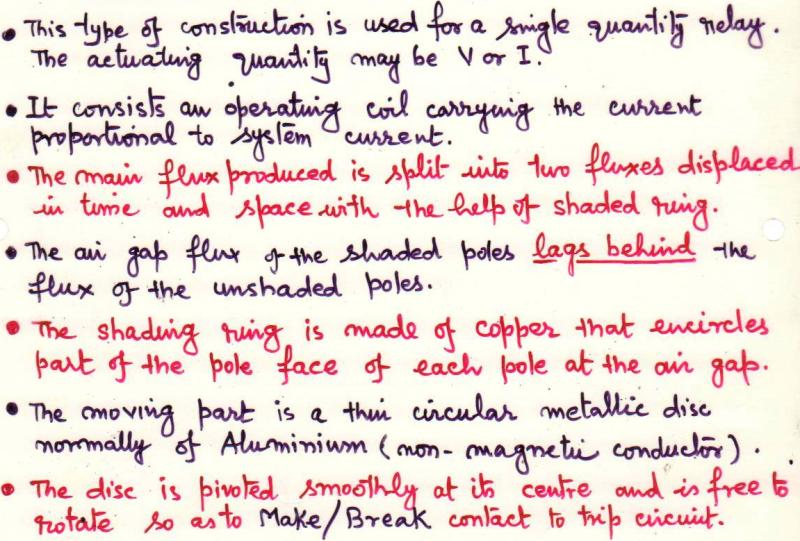 • This type of construction is used for a single quantity relay.
The actuating quantity may be V or I.
• It consists an operating coil carrying the current
proportional to system current.
• The main flux produced is split into two fluxes displaced
in time and space with the help of shaded ring.
• The air gap flux of the shaded poles lags behind the
flux of the unshaded poles.
• The shading ring is made of copper that encircles
part of the pole face of each pole at the air gap.
• The moving part is a thin circular metallic disc
normally of Aluminium (non-magnetic conductor).
• The disc is pivoted smoothly at its centre and is free to
rotate so as to Make/Break contact to trip circuit.